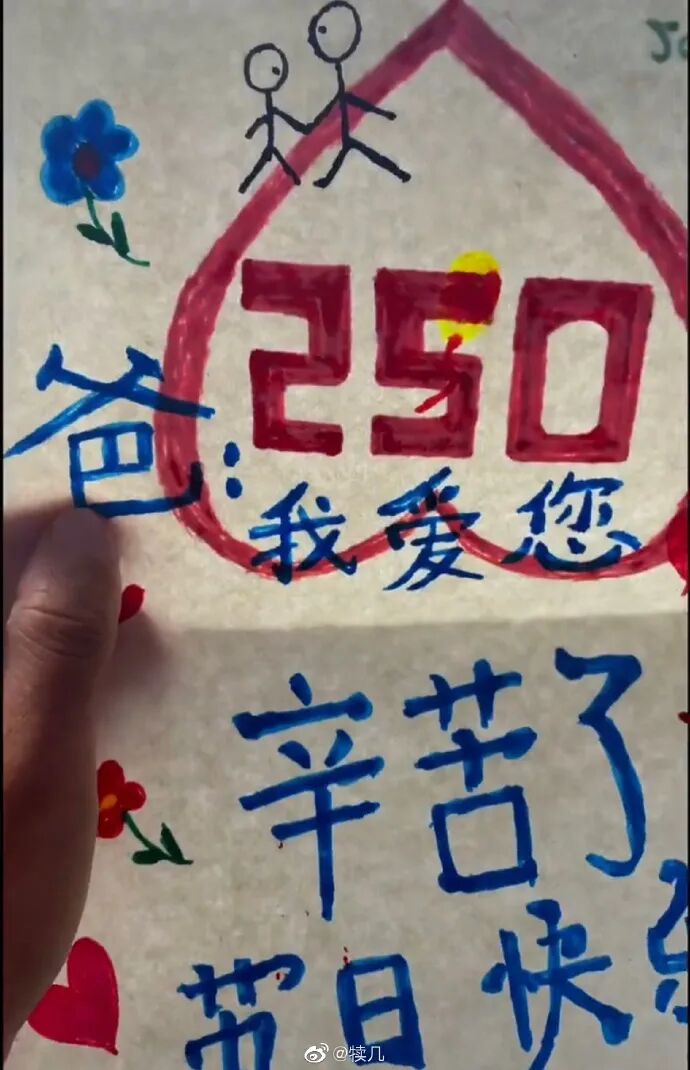 250
爸:
我爱您
辛苦了
节日快乐
@犊几